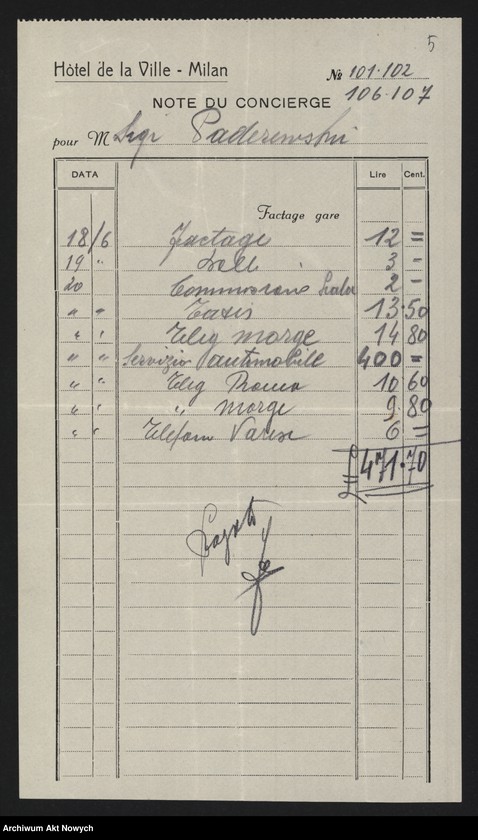 5
Hôtel de la Ville - Milan
№ 101·102
106·107
NOTE DU CONCIERGE
pour M Sigr Paderewski
DATA Lire Cent.
Factage gare
18/6 Factage 12 =
19 " 3 -
20 Commissione Scala 2 -
" " Taxis 13·50
" " Teleg morge 14 80
" " Servizio automobile 400 =
" " Teleg Roma 10 60
" " " morge 9·80
" " Telefono Varese 6 =
£ 471·70
Pagato
Archiwum Akt Nowych